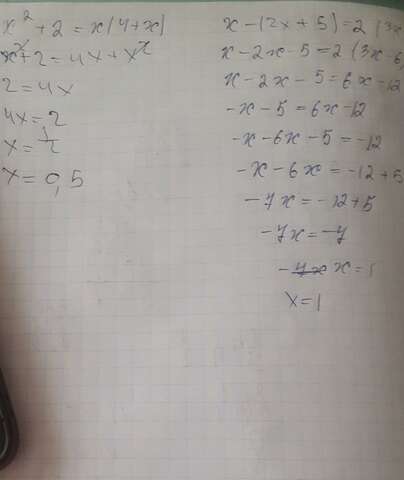 x² + 2 = x(4+x)
x² + 2 = 4x + x²
2 = 4x
4x = 2
x = 1/2
x = 0,5
x - (2x + 5) = 2 (3x
x - 2x - 5 = 2 (3x - 6
x - 2x - 5 = 6x - 12
-x - 5 = 6x - 12
-x - 6x - 5 = -12
-x - 6x = -12 + 5
-7x = -12 + 5
-7x = -7
x = 1
x = 1